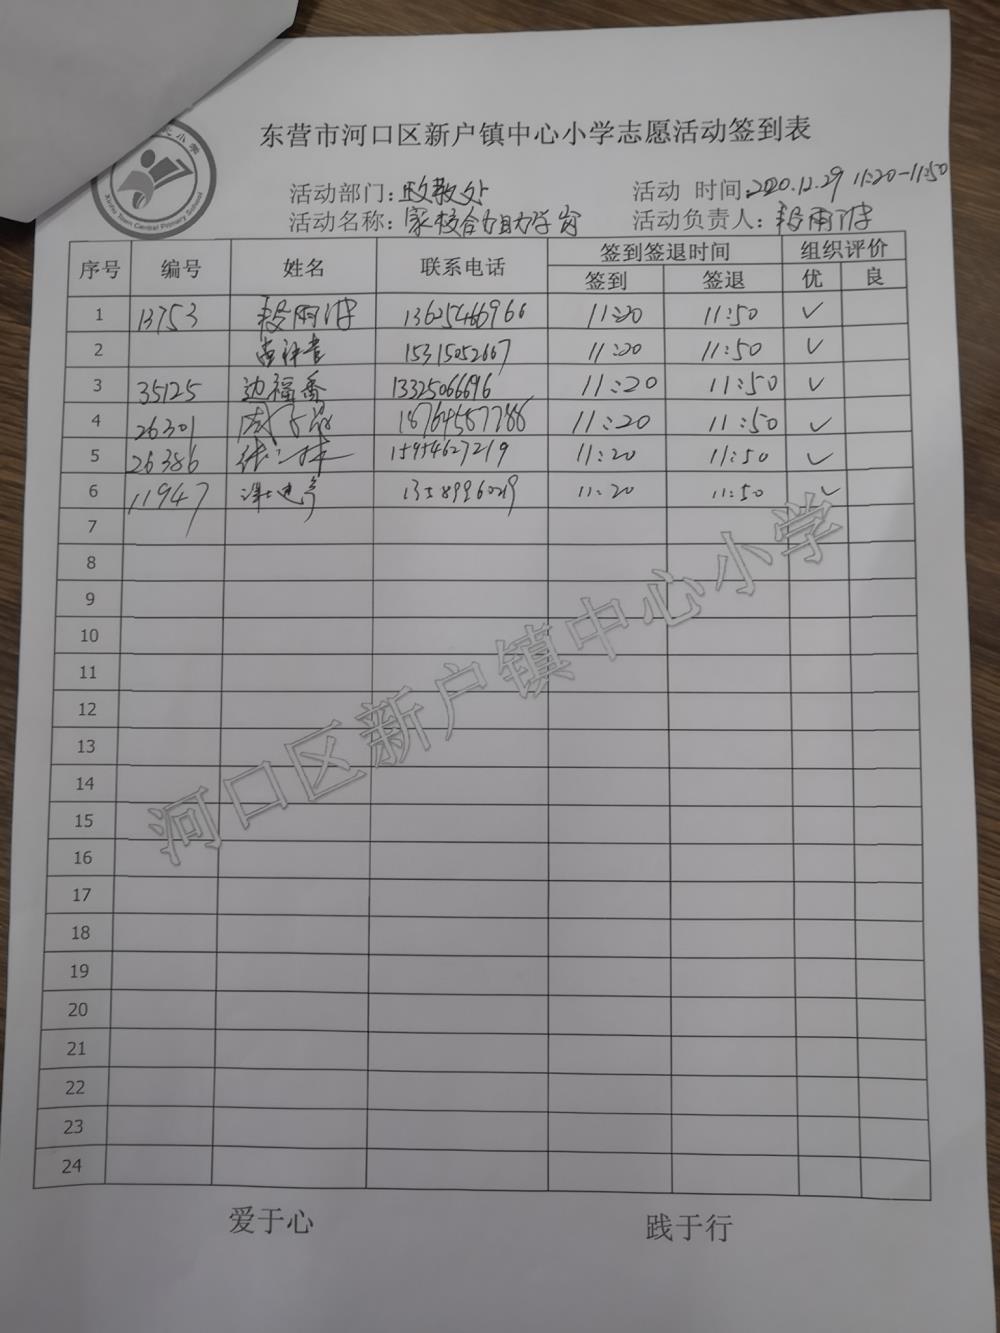 小学
Xinhu Town Central Primary School
东营市河口区新户镇中心小学志愿活动签到表
活动部门：政教处 活动 时间：2020.12.29 11:20-11:50
活动名称：家校合力助学 活动负责人：段雨
序号 编号 姓名 联系电话 签到签退时间 组织评价
签到 签退 优 良
1 13753 段雨 13625466966 11:20 11:50 ✓
2 15315052667 11:20 11:50 ✓
3 35125 边福香 13325066696 11:20 11:50 ✓
4 26301 18764587788 11:20 11:50 ✓
5 26386 15954627219 11:20 11:50 ✓
6 11947 13589996029 11:20 11:50 ✓
7
8
9
10
11
12
13
14
15
16
17
18
19
20
21
22
23
24
河口区新户镇中心小学
爱于心 践于行